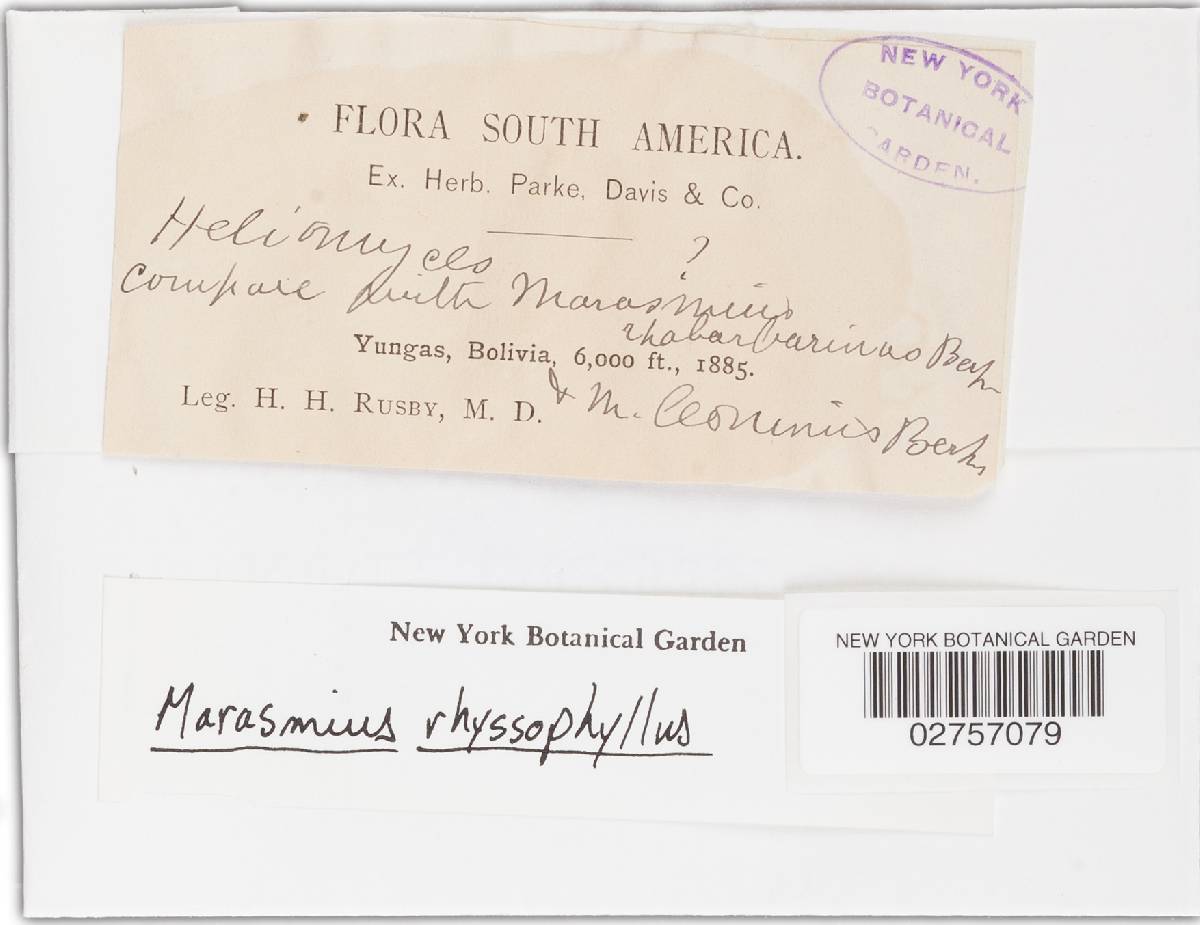 NEW YORK
BOTANICAL
GARDEN.
FLORA SOUTH AMERICA.
Ex. Herb. Parke, Davis & Co.
Heliomyces ?
compare with Marasmius
rhabarbarinus Berk
Yungas, Bolivia, 6,000 ft., 1885.
Leg. H. H. RUSBY, M. D.
& M. leoninus Berk
New York Botanical Garden
Marasmius rhyssophyllus
NEW YORK BOTANICAL GARDEN
02757079